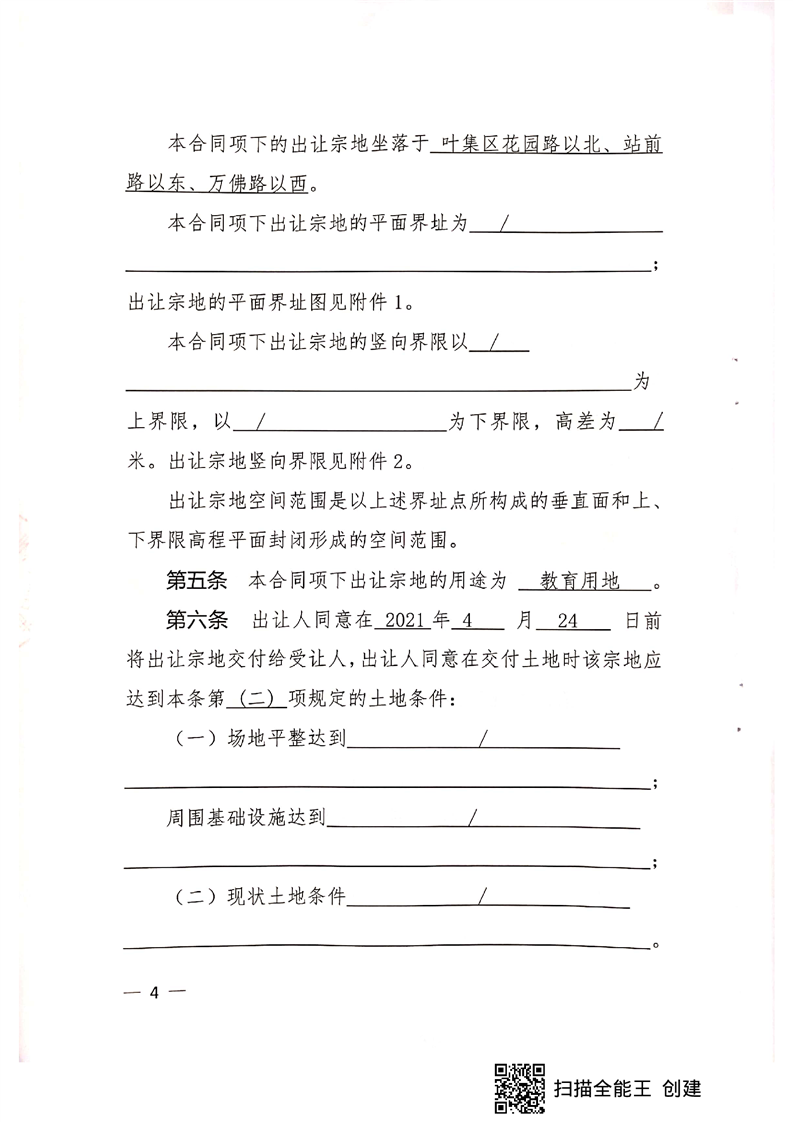 本合同项下的出让宗地坐落于 叶集区花园路以北、站前
路以东、万佛路以西。
本合同项下出让宗地的平面界址为 /
；
出让宗地的平面界址图见附件1。
本合同项下出让宗地的竖向界限以 /
为
上界限，以 / 为下界限，高差为 /
米。出让宗地竖向界限见附件2。
出让宗地空间范围是以上述界址点所构成的垂直面和上、
下界限高程平面封闭形成的空间范围。
第五条 本合同项下出让宗地的用途为 教育用地 。
第六条 出让人同意在 2021 年 4 月 24 日前
将出让宗地交付给受让人，出让人同意在交付土地时该宗地应
达到本条第 (二) 项规定的土地条件：
（一）场地平整达到 /
；
周围基础设施达到 /
；
（二）现状土地条件 /
。
— 4 —
扫描全能王 创建